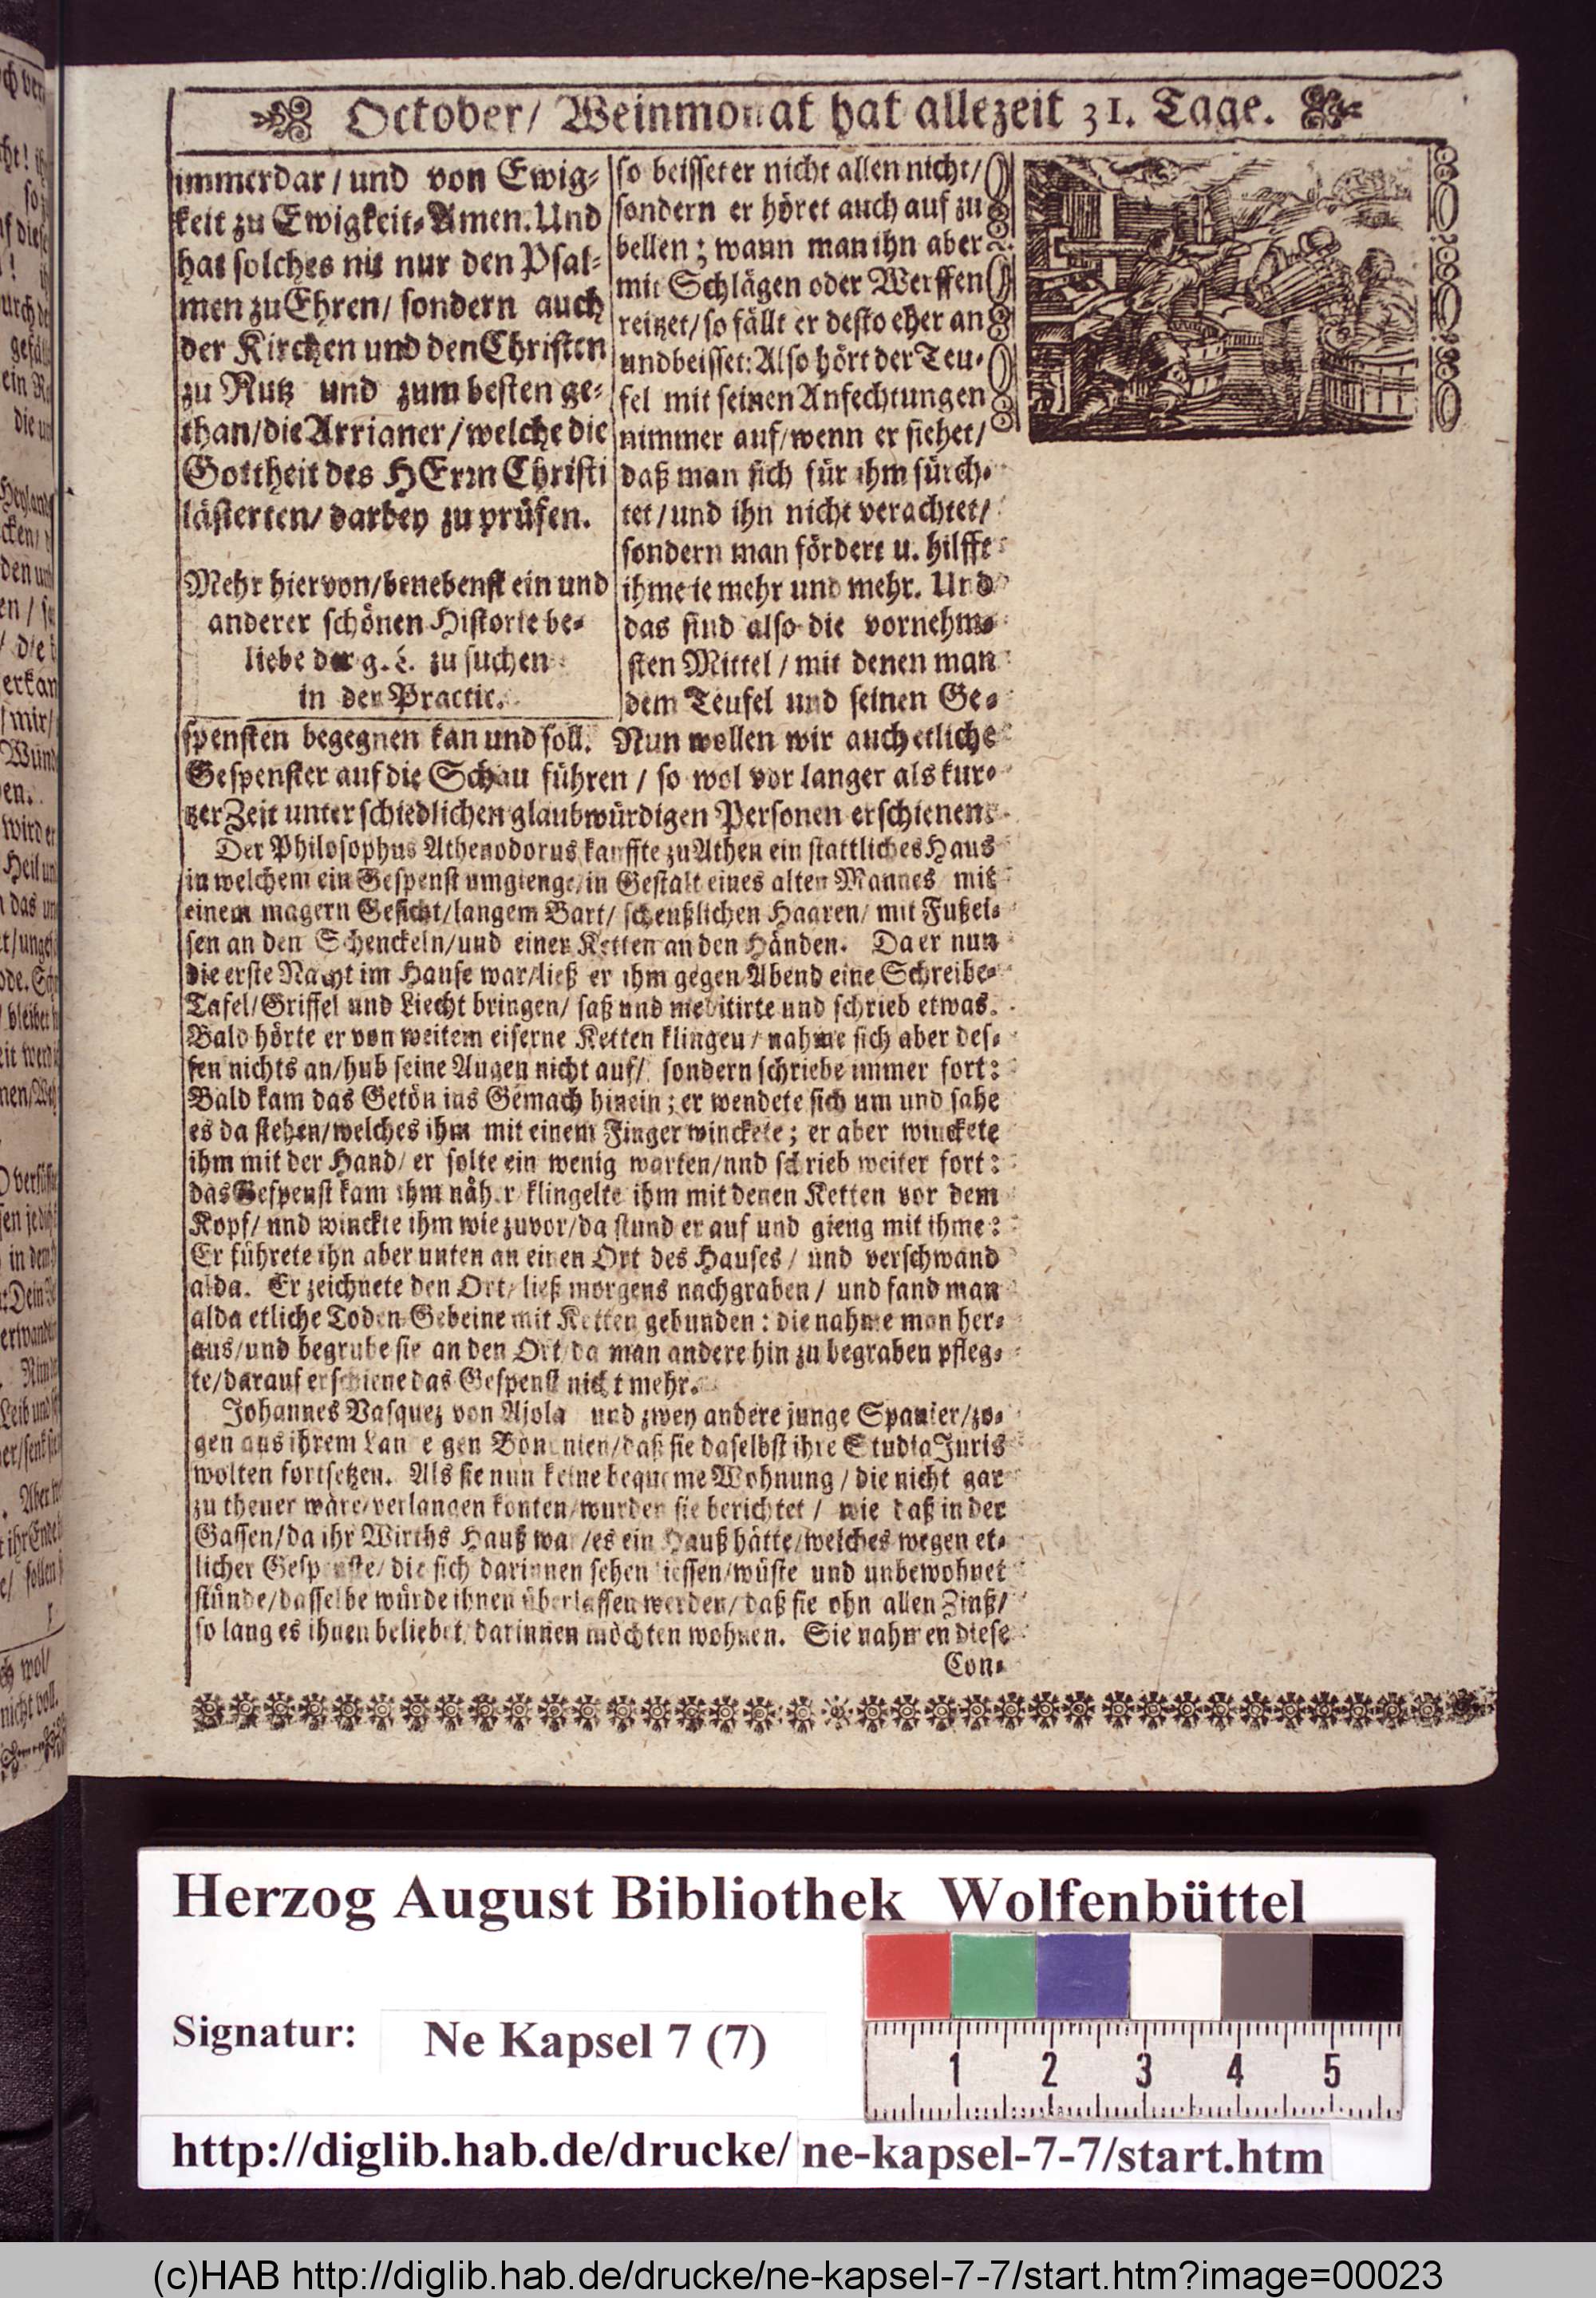 October/ Weinmonat hat allezeit 31. Tage.
immerdar/ und von Ewig-
keit zu Ewigkeit-Amen. Und
hat solches nit nur den Psal-
men zu Ehren/ sondern auch
der Kirchen und den Christen
zu Nutz und zum besten ge-
than/die Arrianer/welche die
Gottheit des HErrn Christi
lästerten/ darbey zu prüfen.
Mehr hiervon/benebenst ein und
anderer schönen Historie be-
liebe der g. L. zu suchen
in der Practic.
so beisset er nicht allen nicht/
sondern er höret auch auf zu
bellen; wann man ihn aber
mit Schlägen oder Werffen
reitzet/ so fällt er desto eher an
und beisset: Also hört der Teu-
fel mit seinen Anfechtungen
nimmer auf/wenn er siehet/
daß man sich für ihm fürch-
tet/ und ihn nicht verachtet/
sondern man fördert u. hilfft
ihme ie mehr und mehr. Und
das sind also die vornehm-
sten Mittel/ mit denen man
dem Teufel und seinen Ge-
spensten begegnen kan und soll. Nun wollen wir auch etliche
Gespenster auf die Schau führen/ so wol vor langer als kur-
tzer Zeit unterschiedlichen glaubwürdigen Personen erschienen.
Der Philosophus Athenodorus kauffte zu Athen ein stattliches Haus
in welchem ein Gespenst umgienge/in Gestalt eines alten Mannes mit
einem magern Gesicht/langem Bart/ scheußlichen Haaren/ mit Fußei-
sen an den Schenckeln/und einer Ketten an den Händen. Da er nun
die erste Nacht im Hause war/ließ er ihm gegen Abend eine Schreibe-
Tafel/Griffel und Liecht bringen/ saß und meditirte und schrieb etwas.
Bald hörte er von weitem eiserne Ketten klingen/ nahme sich aber des-
sen nichts an/hub seine Augen nicht auf/ sondern schriebe immer fort:
Bald kam das Getön ins Gemach hinein; er wendete sich um und sahe
es da stehen/welches ihm mit einem Finger winckete; er aber winckete
ihm mit der Hand/ er solte ein wenig warten/und schrieb weiter fort:
das Gespenst kam ihm näher klingelte ihm mit denen Ketten vor dem
Kopf/ und winckte ihm wie zuvor/da stund er auf und gieng mit ihme:
Er führete ihn aber unten an einen Ort des Hauses/ und verschwand
alda. Er zeichnete den Ort/ ließ morgens nachgraben/ und fand man
alda etliche Toden-Gebeine mit Ketten gebunden: die nahme man her-
aus/und begrube sie an den Ort da man andere hin zu begraben pfleg-
te/darauf erschiene das Gespenst nicht mehr.
Johannes Vasquez von Ajola und zwey andere junge Spanier/zo-
gen aus ihrem Lande gen Bononien/daß sie daselbst ihre Studia Juris
wolten fortsetzen. Als sie nun keine bequeme Wohnung/ die nicht gar
zu theuer wäre/verlangen konten/wurden sie berichtet/ wie daß in der
Gassen/da ihr Wirths Hauß war/es ein Hauß hätte/welches wegen et-
licher Gespenste/ die sich darinnen sehen liessen/wüste und unbewohnet
stünde/dasselbe würde ihnen überlassen werden/ daß sie ohn allen Zinß/
so lang es ihnen beliebet/ darinnen möchten wohnen. Sie nahmen diese
Con-
Herzog August Bibliothek Wolfenbüttel
Signatur: Ne Kapsel 7 (7)
1 2 3 4 5
http://diglib.hab.de/drucke/ne-kapsel-7-7/start.htm
(c)HAB http://diglib.hab.de/drucke/ne-kapsel-7-7/start.htm?image=00023